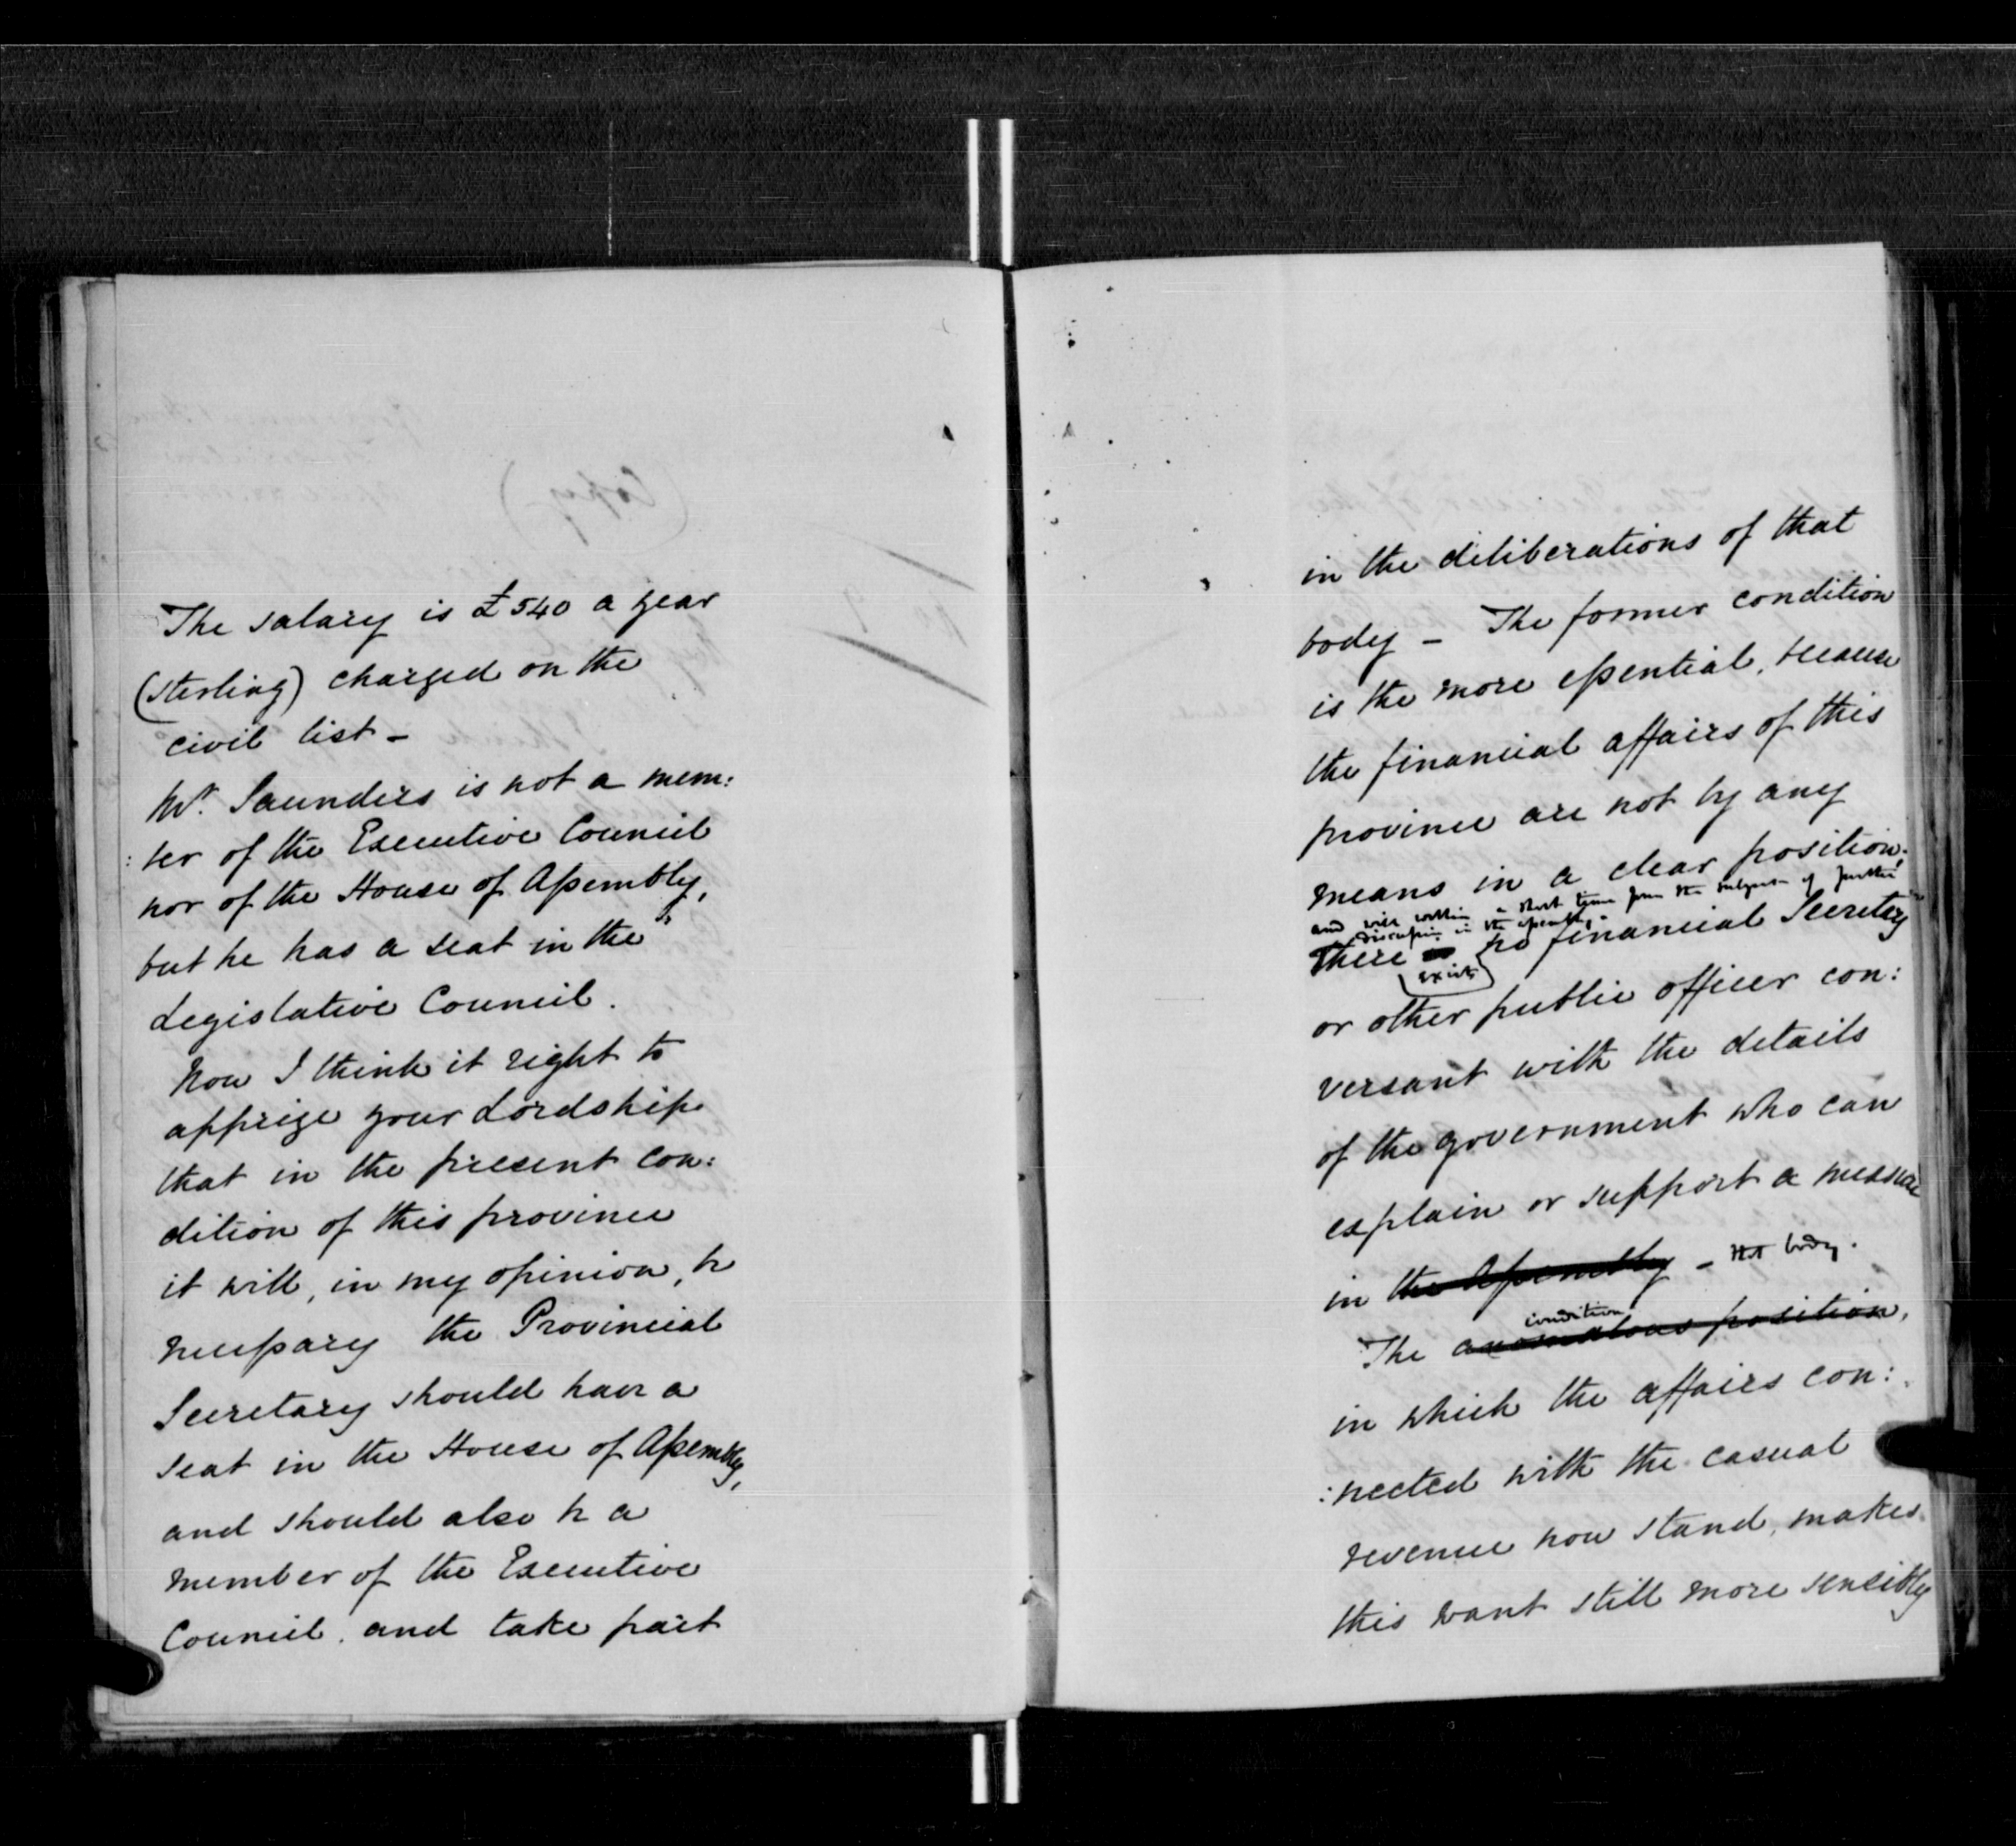 The salary is £540 a year
(sterling) charged on the
civil list –
Mr. Saunders is not a mem:
:ber of the Executive Council
nor of the House of Assembly,
but he has a seat in the
Legislative Council.
Now I think it right to
apprize your Lordship
that in the present con:
dition of this province
it will, in my opinion, be
necessary the Provincial
Secretary should have a
seat in the House of Assembly,
and should also be a
member of the Executive
Council, and take part
in the deliberations of that
body – The former condition
is the more essential, because
the financial affairs of this
province are not by any
means in a clear position,
and will within a short time form the subject of further
discussion in the assembly.
There exists no financial Secretary
or other public officer con:
versant with the details
of the government who can
explain or support a measure
in the Assembly – that body.
condition
The anomalous position,
in which the affairs con:
:nected with the casual
revenue now stand, makes
this want still more sensibly